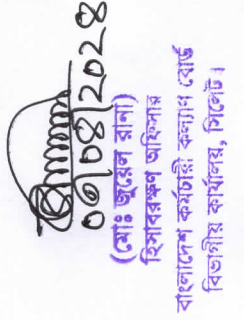 ০৭|০৪|২০২৪
(মোঃ জুয়েল রানা)
হিসাবরক্ষণ অফিসার
বাংলাদেশ কর্মচারী কল্যাণ বোর্ড
বিভাগীয় কার্যালয়, সিলেট।